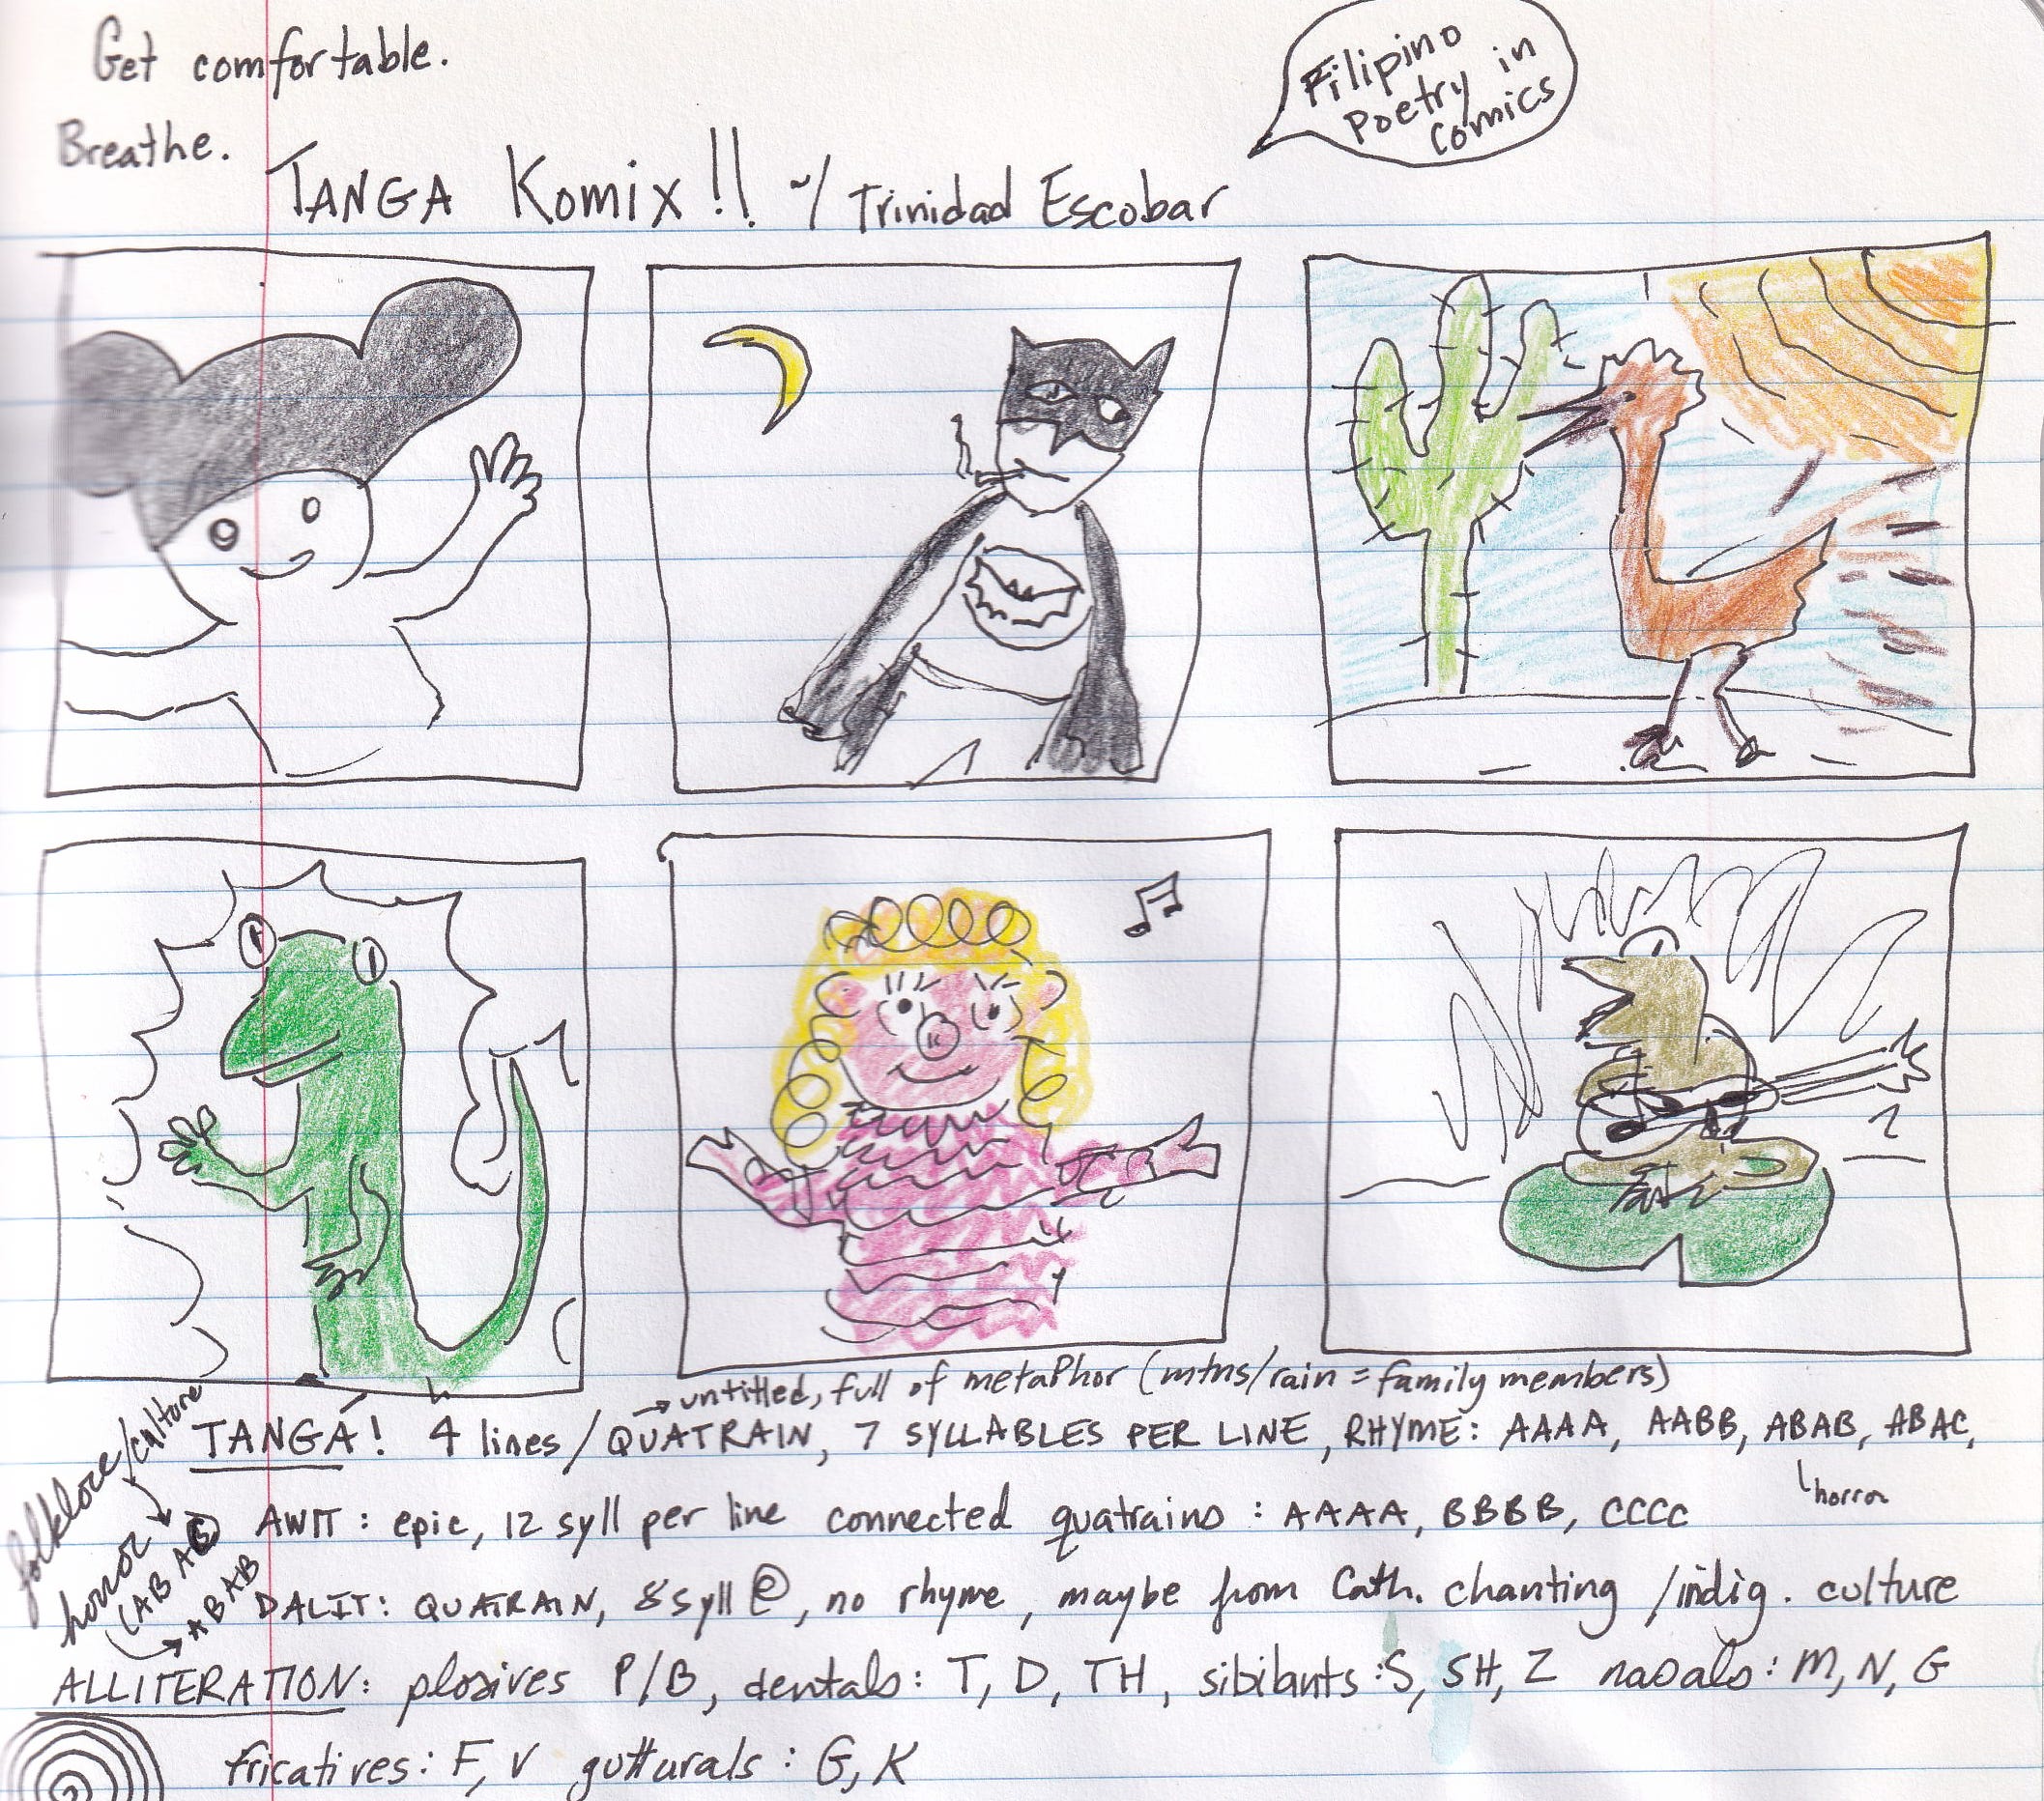 Get comfortable.
Breathe.
Filipino
Poetry in
Comics
TANGA Komix!! ~/ Trinidad Escobar
→ untitled, full of metaphor (mtns/rain = family members)
TANGA! 4 lines/QUATRAIN, 7 SYLLABLES PER LINE, RHYME: AAAA, AABB, ABAB, ABAC,
horror
folklore/culture
horror
(ABAB
→ ABAB
AWIT: epic, 12 syll per line connected quatrains: AAAA, BBBB, CCCC
DALIT: QUATRAIN, 8 syll @, no rhyme, maybe from Cath. chanting /indig. culture
ALLITERATION: plosives P/B, dentals: T, D, TH, sibilants: S, SH, Z nasals: M, N, G
fricatives: F, V gutturals: G, K